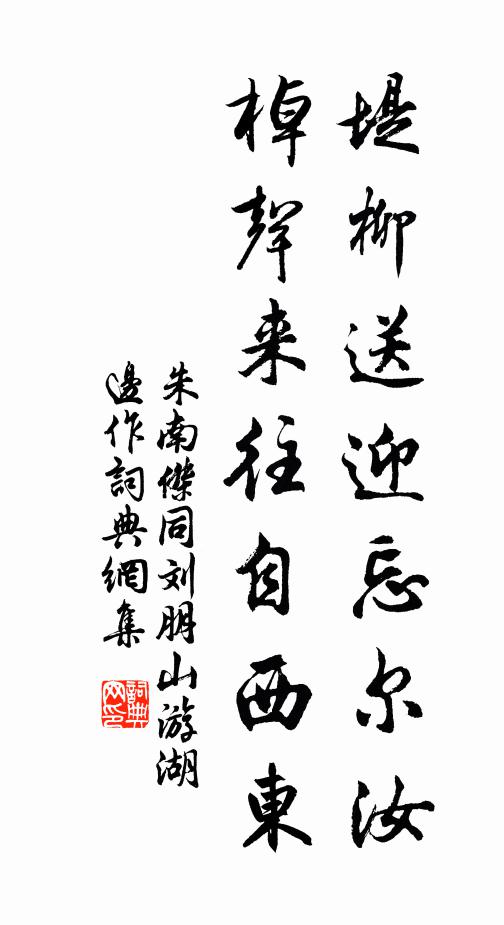 堤柳送迎忘尔汝
棹聲来往自西東
朱南傑同刘朋山游湖
邊作詞典網集
詞典
网印